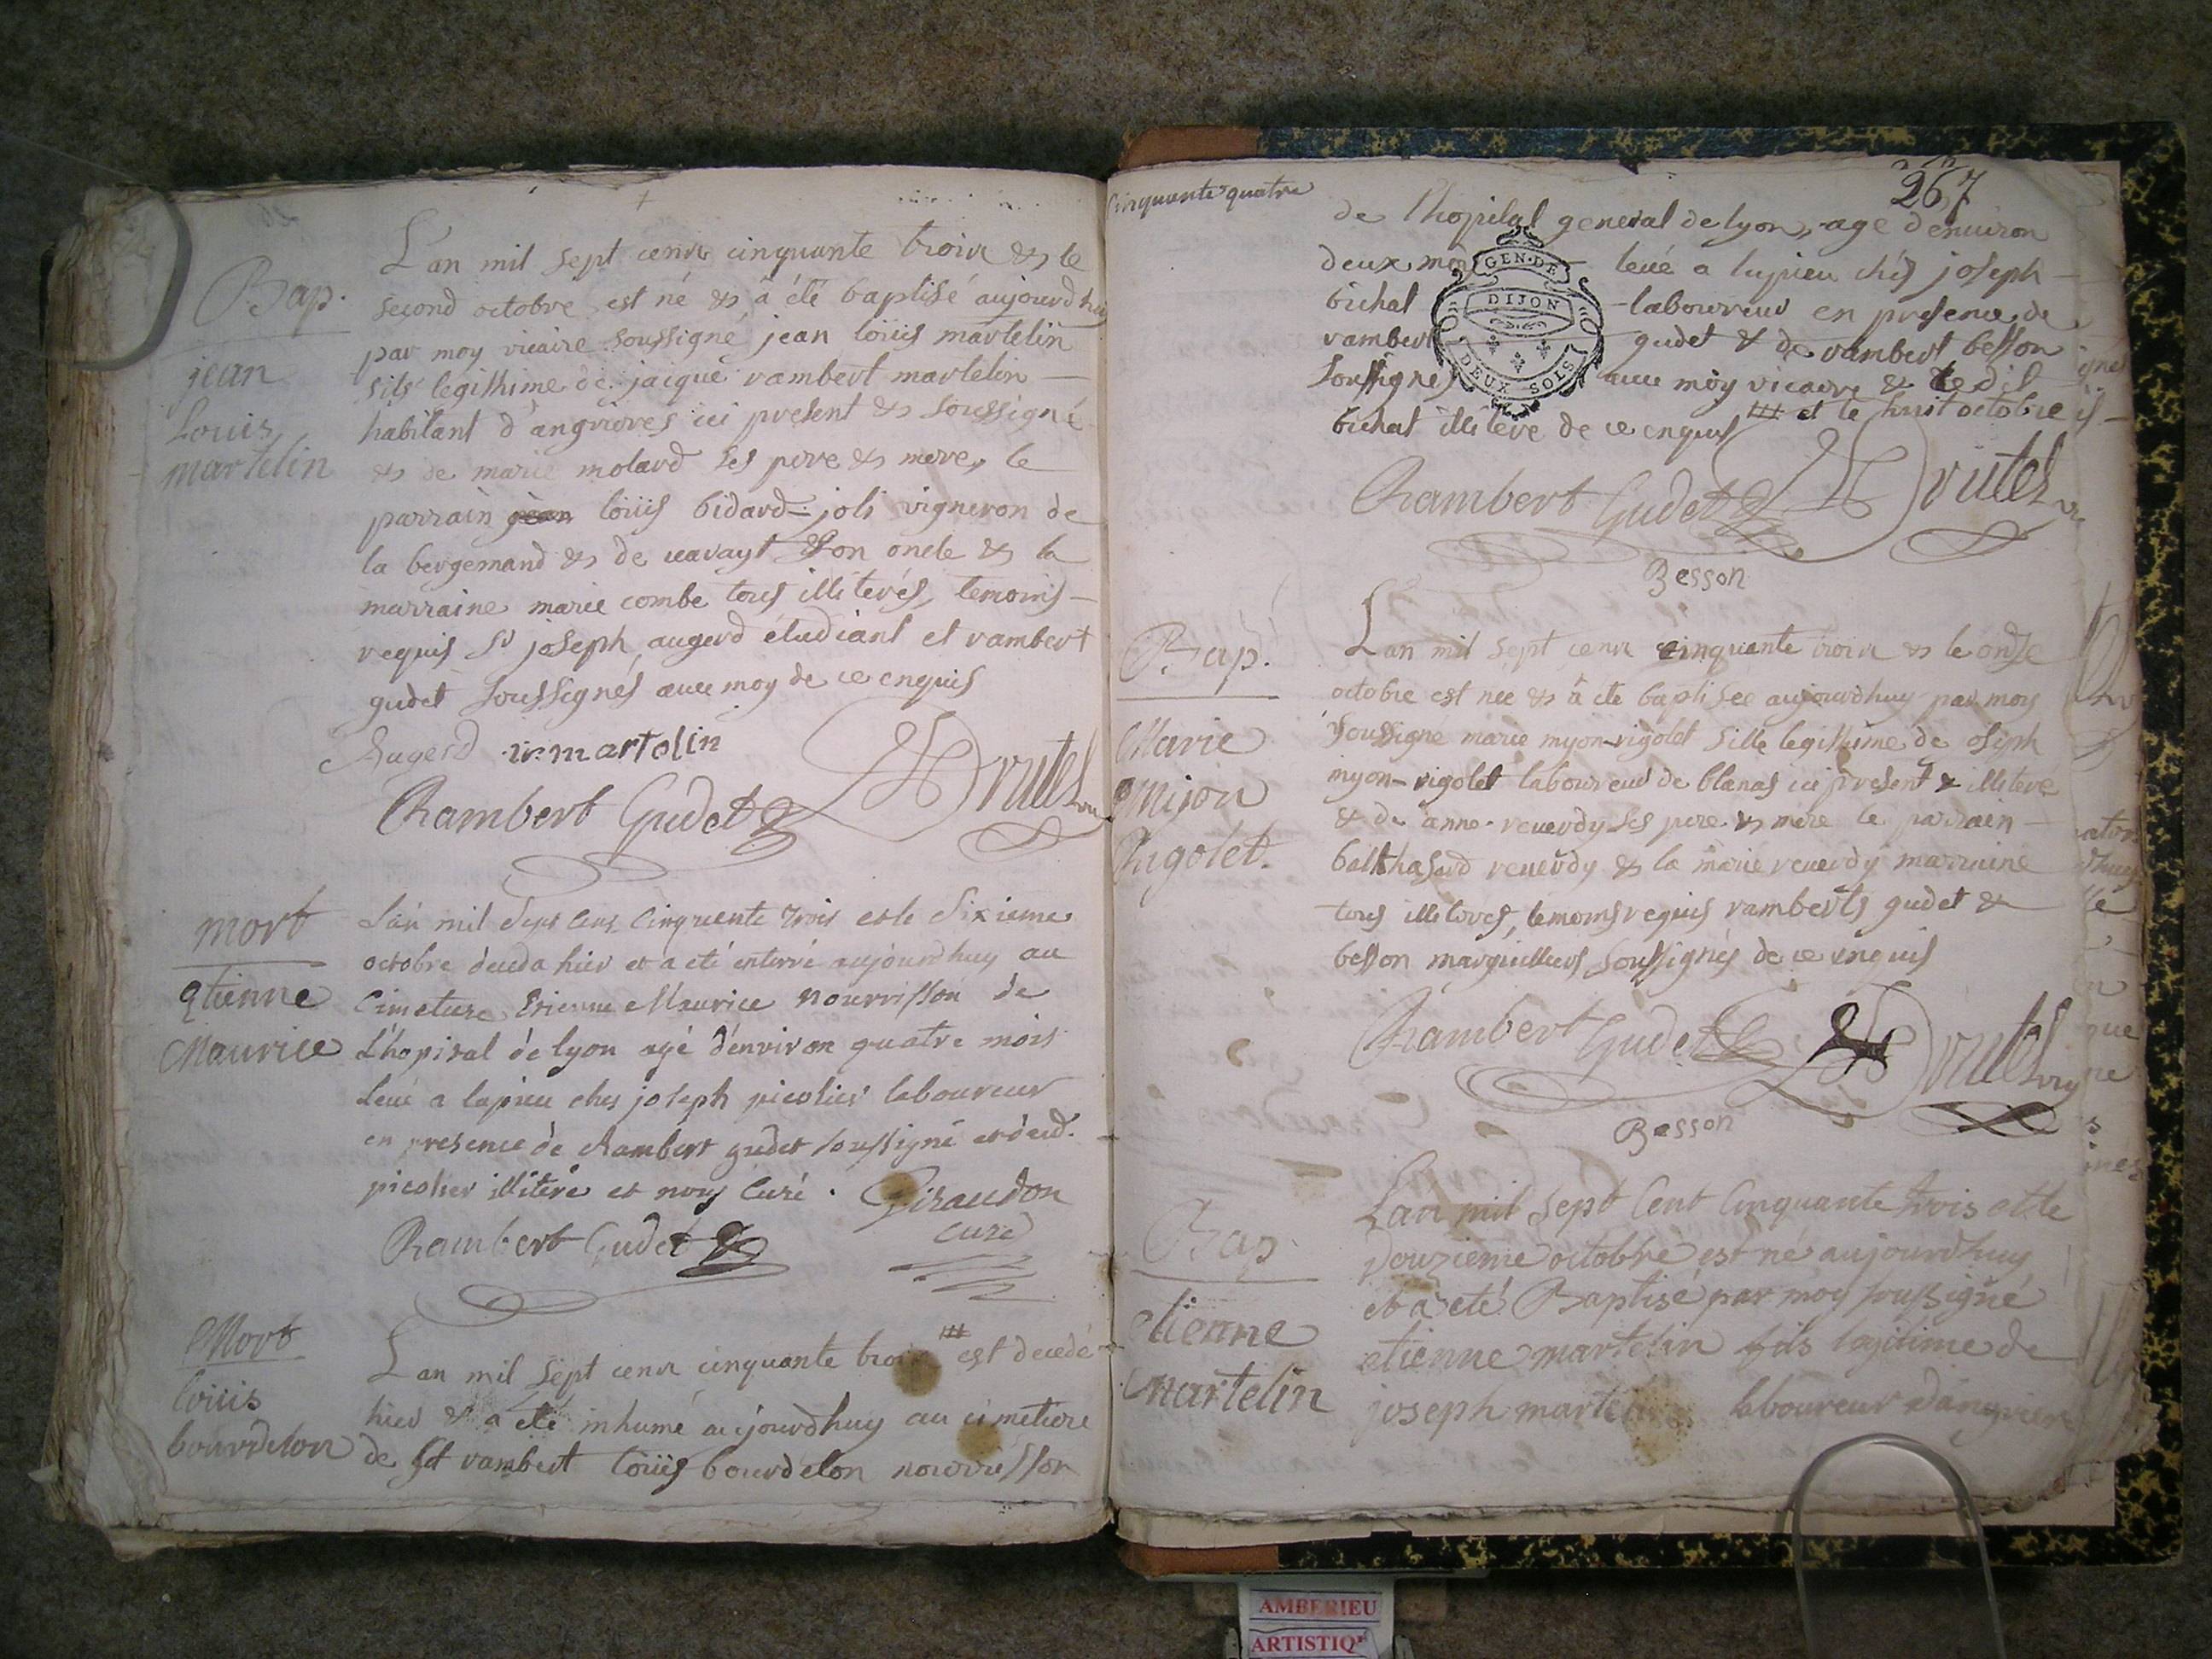 Bap.
jean
Louis
martelin
L'an mil sept cens cinquante trois & le
second octobre est né & a été baptisé aujourdhuy
par moy vicaire soussigné jean loüis martelin
fils legithime de jacque rambert martelin
habitant d'angrieres ici present & soussigné
& de marie molard ses pere & mere, le
parrain jean loüis bidard-joli vigneron de
la bergemand & de son oncle & la
marraine marie combe tous illiterés, temoins
requis Sr joseph augerd étudiant et rambert
gudet soussignés avec moy de ce enquis
Augerd j.r.martelin
Rambert Gudet Brutel vic
mort
etienne
Maurice
L'an mil Sept Cens Cinquente trois et le Sixieme
octobre deceda hier et a eté enterré aujourdhuy au
Cimetiere Etienne Maurice nourrisson de
L'hopital de lyon agé d'environ quatre mois
Levé a lupieu ches joseph picolier laboureur
en presence de Rambert gudet soussigné et dud.
picolier illiteré et nous Curé. Giraudon
curé
Rambert Gudet
Mort
loüis
bourdelon
L an mil sept cens cinquante trois est decedé
hier & a eté inhumé aujourdhuy au cimetiere
de St rambert loüis bourdelon nourrisson
Cinquante quatre
267
de lhopital general de lyon, agé d'environ
deux mois levé a lupieu chés joseph
bichat laboureur en presence de
rambert gudet & de rambert besson
soussignés avec moy vicaire & le dit
bichat illiteré de ce enquis et le huit octobre
GEN·DE
DIJON
DEUX SOLS
Rambert Gudet Brutel vic
Besson
Bap.
Marie
mijon
Rigolet.
L an mil sept cens cinquante trois & le onze
octobre est née & a eté baptisée aujourdhuy par moy
soussigné marie myon-rigolet fille legithime de joseph
myon-rigolet laboureur de blanas ici present & illiteré
& de anne reverdy ses pere & mere le parrain
balthasard reverdy & la marie reverdy marraine
tous illiterés, temoins requis ramberts gudet &
besson marguilliers soussignés de ce enquis
Rambert Gudet Brutel vic
Besson
Bap
etienne
martelin
L an mil Sept Cent Cinquante trois et le
douzieme octobre est né aujourdhuy
et a eté Baptisé par moy soussigné
etienne martelin fils legitime de
joseph martelin laboureur d'angrieres
AMBERIEU
ARTISTIQ